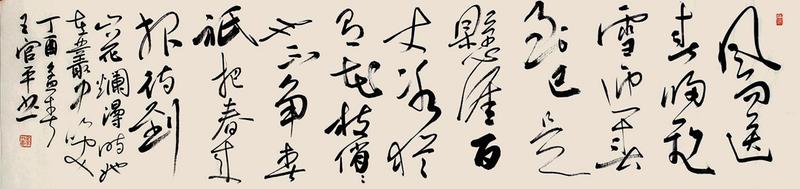 风雨送
春归飛
雪迎春
到已是
懸崖百
丈冰犹
有花枝俏〻
也不争春
祇把春来
报待到
山花爛漫時她
在叢中咲
丁酉孟春
王官平书